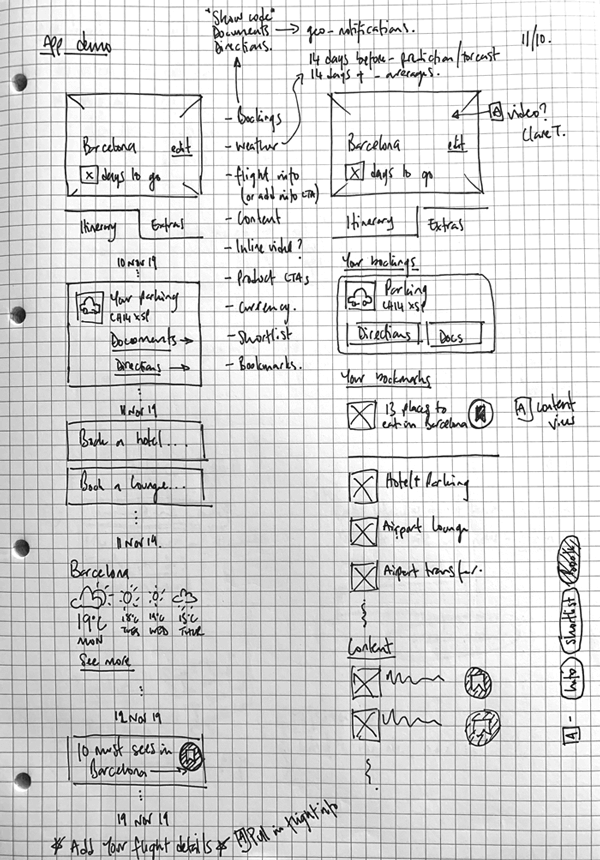 App demo
"Show code"
Documents
Directions.
geo-notifications.
14 days before - prediction/forecast
14 days + - averages.
11/10.
Barcelona
edit
x days to go
Itinerary
Extras
10 Nov 19
Your parking
CA14 XSP
Documents
Directions
11 Nov 19
Book a hotel...
Book a lounge...
11 Nov 19.
Barcelona
19°C
18°C
19°C
15°C
MON
TUES
WED
THUR
See more
12 Nov 19
10 must sees in
Barcelona
19 Nov 19
* Add your flight details *
A Pull in flight info
- Bookings
- Weather
- flight info
(or add info CTA)
- Content
- Inline video?
- Product CTAs
- Currency.
- Shortlist
- Bookmarks.
Barcelona
edit
x days to go
A video?
Clare T.
Itinerary
Extras
Your bookings
Parking
CA14 XSP
Directions
Docs
Your bookmarks
13 places to
eat in Barcelona
A content
views
Hotel + Parking
Airport Lounge
Airport transfer.
Content
A - Info Shortlist Book